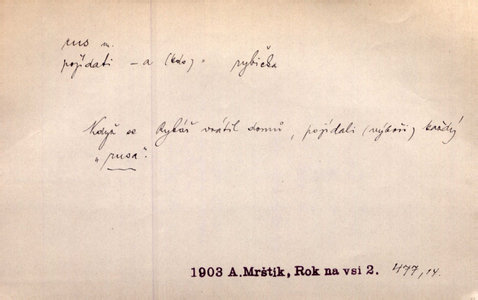 rus m.
pojídati -a (kdo) rybička
Když se Rybář vrátil domů, pojídali (výboři) každý
„rusa“.
1903 A.Mrštík, Rok na vsi 2. 477,14.